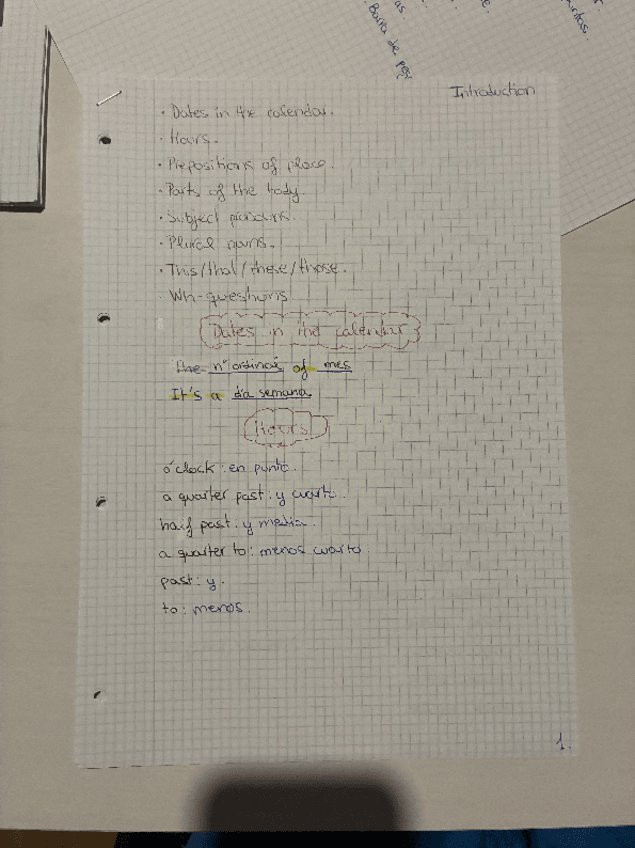 Barra de
Introduction
· Dates in the calendar.
· Hours.
· Prepositions of place.
· Parts of the body.
· Subject pronouns.
· Plural nouns.
· This/that/these/those.
· Wh-questions
Dates in the calendar
the nº ordinal of mes
It's a día semana.
Hours
o'clock: en punto.
a quarter past: y cuarto.
half past: y media.
a quarter to: menos cuarto.
past: y.
to: menos.
1.